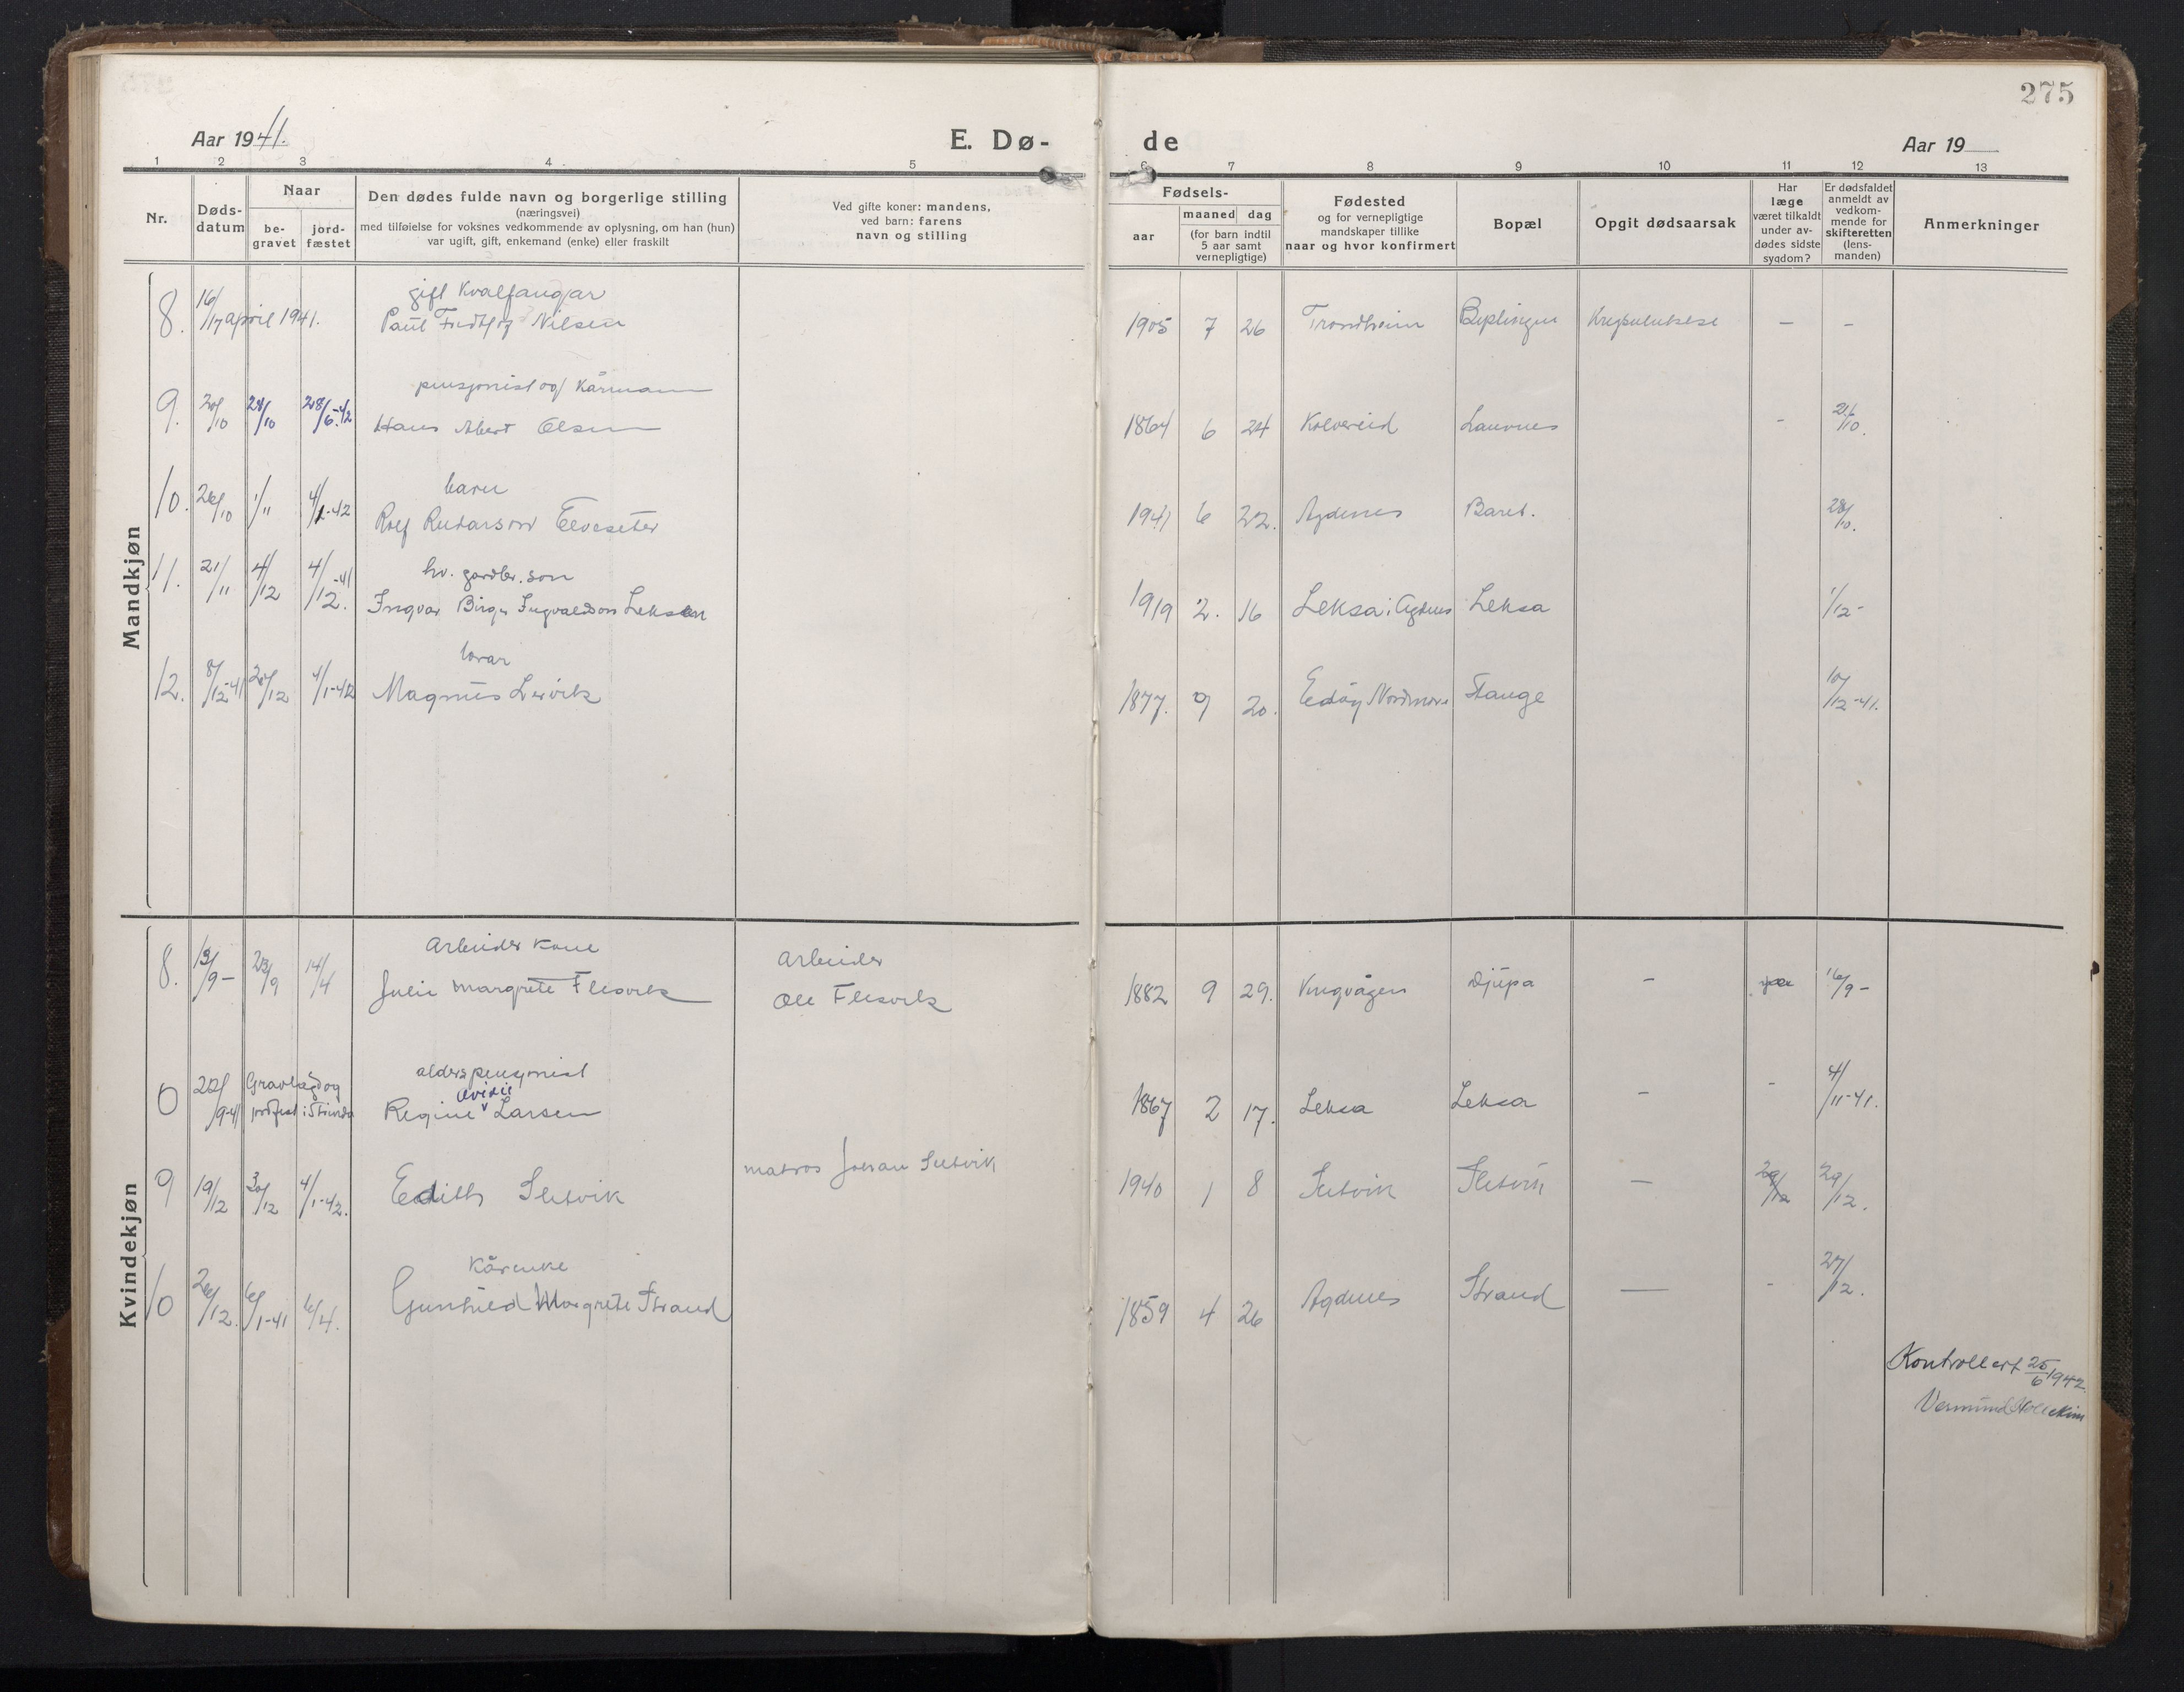 275
Aar 1941.
E. Dø-
de
Aar 19
1 2 3 4 5 6 7 8 9 10 11 12 13
Nr.
Døds-
datum
Naar
be-
gravet
jord-
fæstet
Den dødes fulde navn og borgerlige stilling
(næringsvei)
med tilføielse for voksnes vedkommende av oplysning, om han (hun)
var ugift, gift, enkemand (enke) eller fraskilt
Ved gifte koner: mandens,
ved barn: farens
navn og stilling
Fødsels-
aar
maaned dag
(for barn indtil
5 aar samt
vernepligtige)
Fødested
og for vernepligtige
mandskaper tillike
naar og hvor konfirmert
Bopæl
Opgit dødsaarsak
Har
læge
været tilkaldt
under av-
dødes sidste
sygdom?
Er dødsfaldet
anmeldt av
vedkom-
mende for
skifteretten
(lens-
manden)
Anmerkninger
Mandkjøn
gift Kvalfangar
8. 16/17 april 1941. Paul Nilsen 1905 7 26 Trondheim - -
pensjonist og Kårmann
9. 20/10 28/10 28/6-42 Hans Albert Olsen 1864 6 24 Kolvereid Lauvnes - 21/10.
barn
10. 26/10 1/11 4/1-42 Rolf Elveseter 1941 6 22. Agdenes 28/10.
hv. gardbr. son
11. 21/11 4/12 4/12-41. Ingvar Birger Ingvaldson Leksen 1919 2. 16 Leksa i Agdenes Leksa 1/12-
12. 8/12-41 20/12 4/1-42 Magnus Lervik 1877. 9 20. Edøy Nordmøre Stauge 10/12-41.
Kvindekjøn
Arbeider kone Arbeider
8. 13/9- 23/9 14/4 Julie Margrete Flesvik Ole Flesvik 1882 9 29. Vingvågen Djupa - 16/9-
alderspensjonist
0 22/9-41 Gravlagd og
jordfest i Strinda Regine Ovidie Larsen 1867 2 17. Leksa Leksa - - 4/11-41.
matros Johan Sletvik
9 19/12 30/12 4/1-42. Edith Sletvik 1940 1 8 Sletvik Sletvik - 29/12 29/12.
Kårenke
10 26/12. 6/1-41 6/4. Gunhild Margrete Strand 1859 4 26 Agdenes Strand - - 27/12.
Kontrollert 25/6 1942.